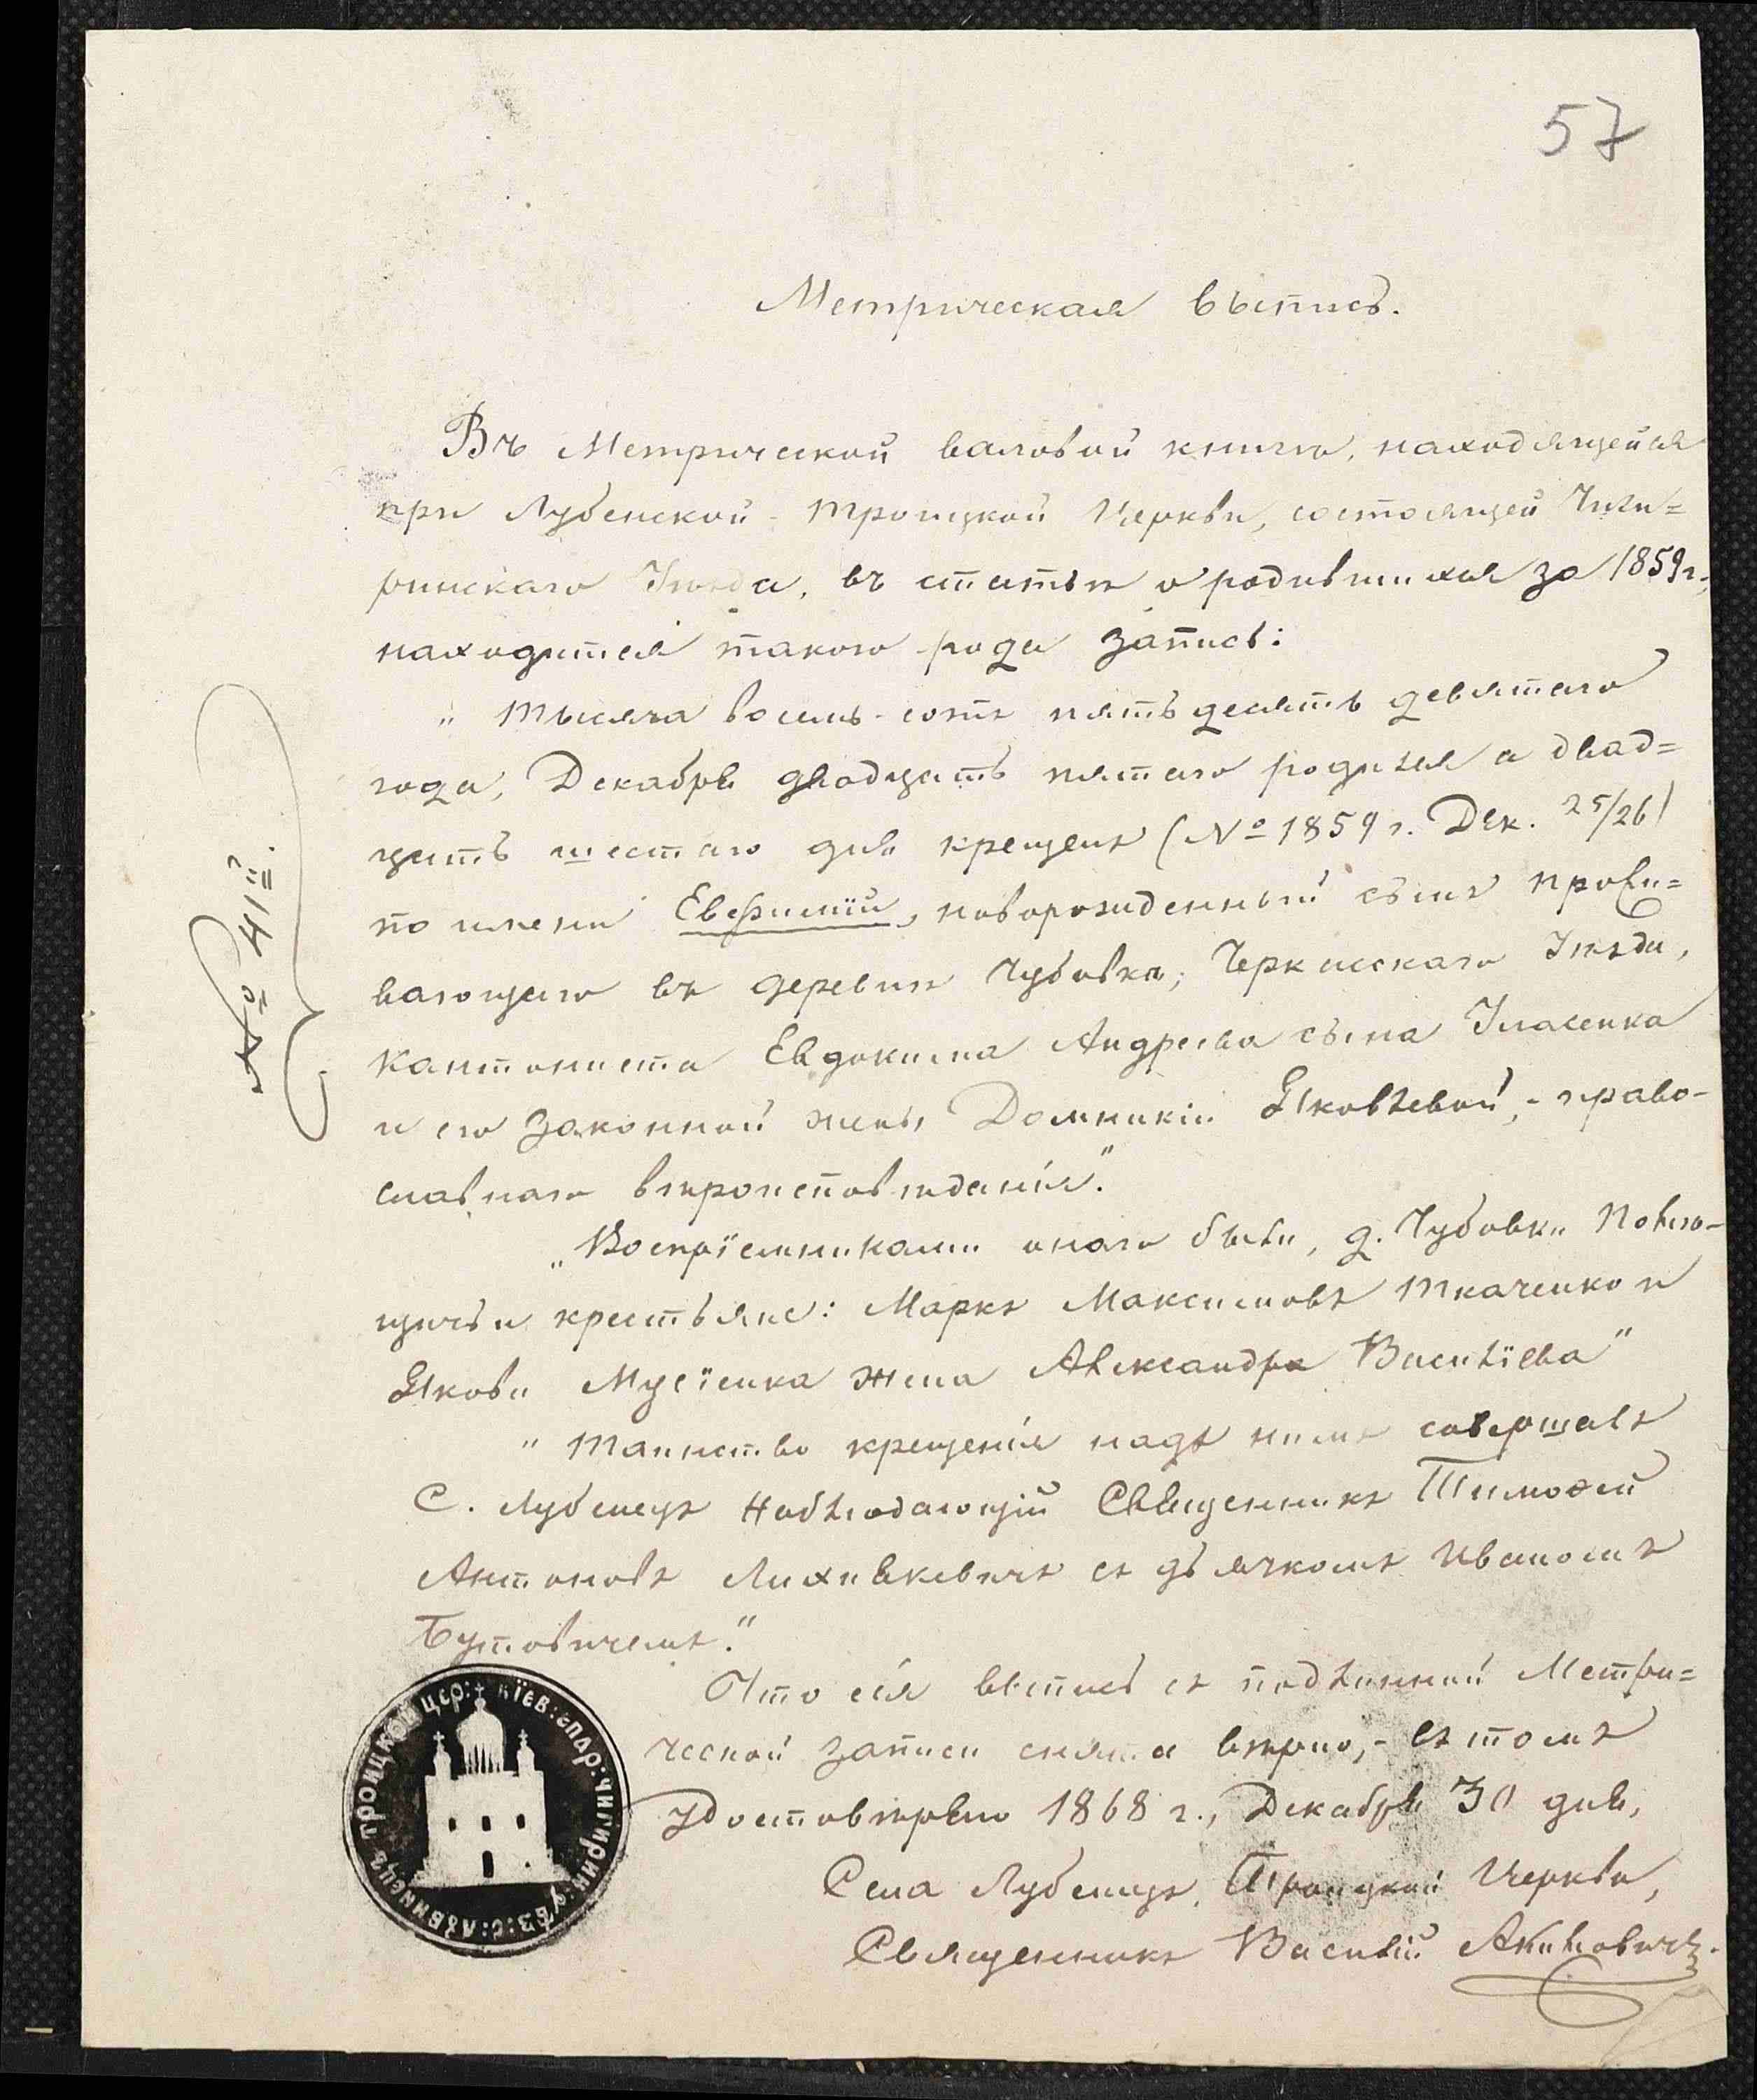 57
Метрическая выпись.
Въ Метрической валовой книгѣ, находящейся
при Лубенской-Троицкой Церкви, состоящей Чиги=
ринскаго Уѣзда, въ статьѣ о родившихся за 1859 г.,
находится такого рода запись:
„Тысяча восемь-сотъ пятьдесятъ девятаго
года, Декабря двадцать пятаго родился а двад=
цать шестаго дня крещенъ (№ 1859 г. Дек. 25/26)
по имени Евфимій, новорожденный сынъ прожи=
вающаго въ деревнѣ Чубовкѣ, Черкасскаго Уѣзда,
кантониста Евдокима Андреева сына Уласенка
и его законной жены Домникіи Яковлевой,- право-
славнаго вѣроисповѣданія."
„Воспріемниками онаго были, д. Чубовки Помѣ-
щичьи крестьяне: Маркъ Максимовъ Ткаченко и
Якова Мусіенка жена Александра Василіева"
„Таинство крещенія надъ нимъ совершалъ
С. Лубенецъ Наблюдающій Священникъ Тимоѳей
Антоновъ Лихивкевичъ съ дьячкомъ Иваномъ
Бутовичемъ."
Что сія выпись съ подлинной Метри=
ческой записи снята вѣрно,- въ томъ
удостовѣряю 1868 г., Декабря 30 дня,
Села Лубенецъ, Троицкой Церкви,
Священникъ Василій Акиловичъ.
№ 41
кіев: епар: чигирин: уѣз: с: лубвинецъ троицкой цер: